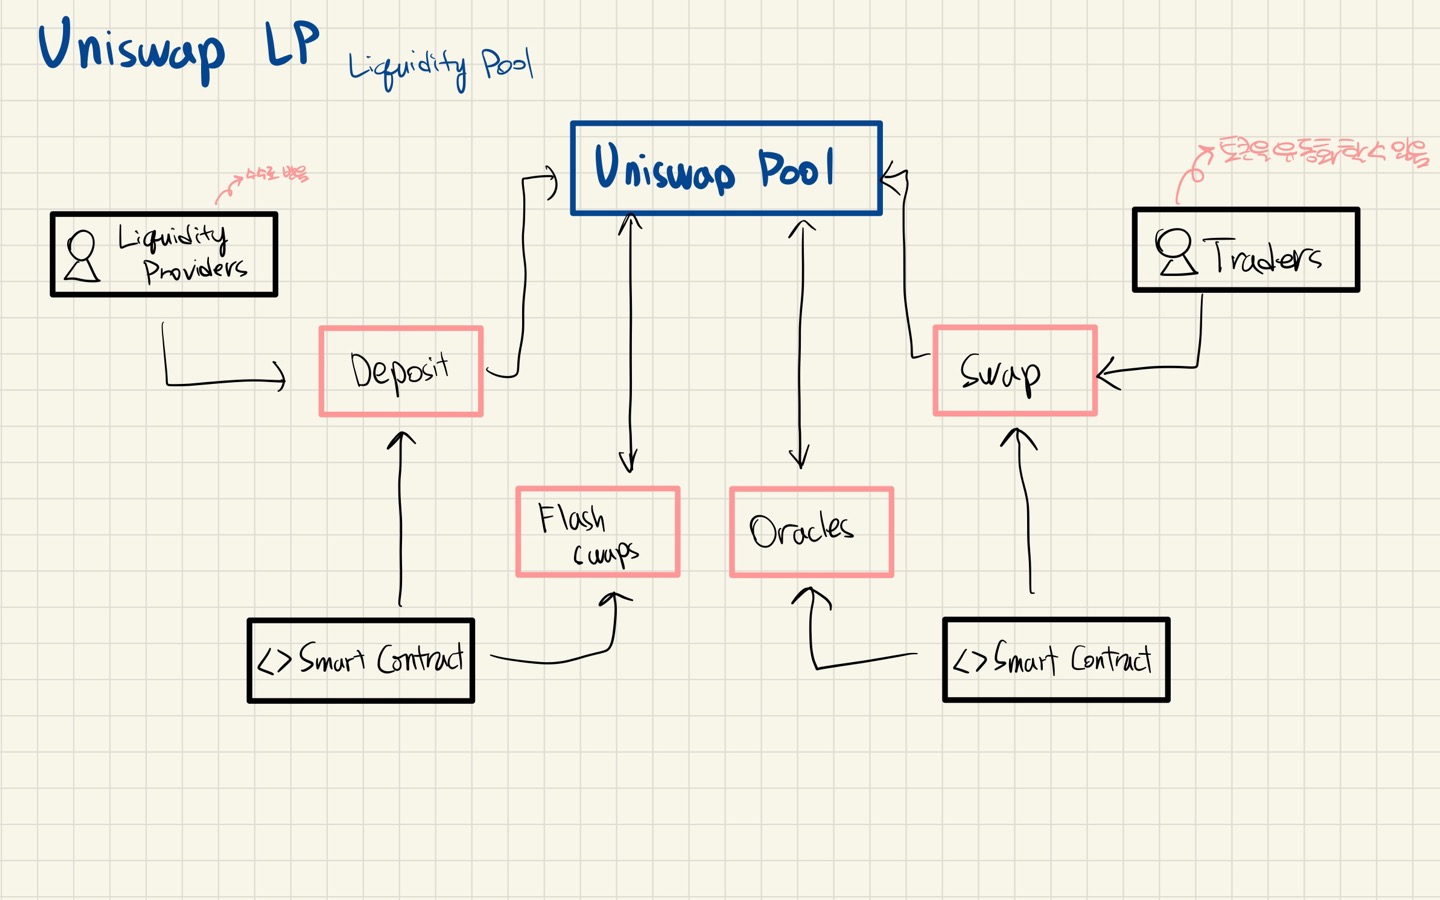 Uniswap LP
Liquidity Pool
Uniswap Pool
수수료 받음
토큰을 유동화할 수 있음
Liquidity
Providers
Traders
Deposit
Swap
Flash
swaps
Oracles
<> Smart Contract
<> Smart Contract